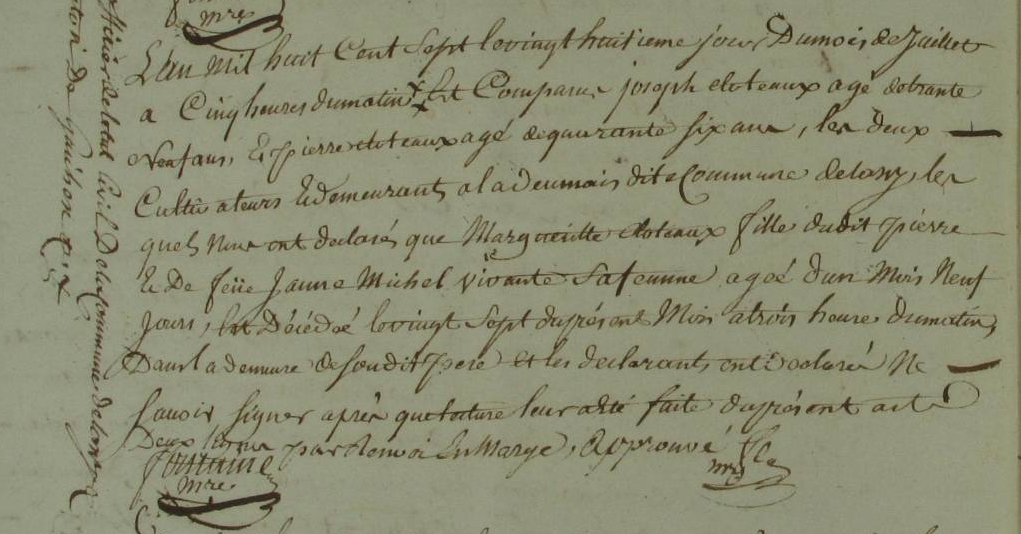 mre
L'an mil huit Cent Sept le vingt huitieme jour Du mois de Juillet
a Cinq heures du matin Est Comparue joseph cloteaux agé de trante
Neuf ans, & pierre cloteaux agé de quarante six ans, les deux
Cultivateurs & demeurants a la demais dite Commune de lony, les
quels Nous ont declarés que Margueritte cloteaux fille dudit pierre
& De feüe Janne Michel vivante sa femme agée d'un Mois Neuf
Jours, Est Décédée le vingt Sept du présent Mois a trois heure du matin,
Dans la demeure de Son dit pere et les declarants ont declaré Ne
Savoir Signer après que lecture leur a été faite du présent acte
Deux lignes par renvoi En Marge, approuvé
fontaine
mre
mre
officier de l'etat Civil De la Commune de
Canton De